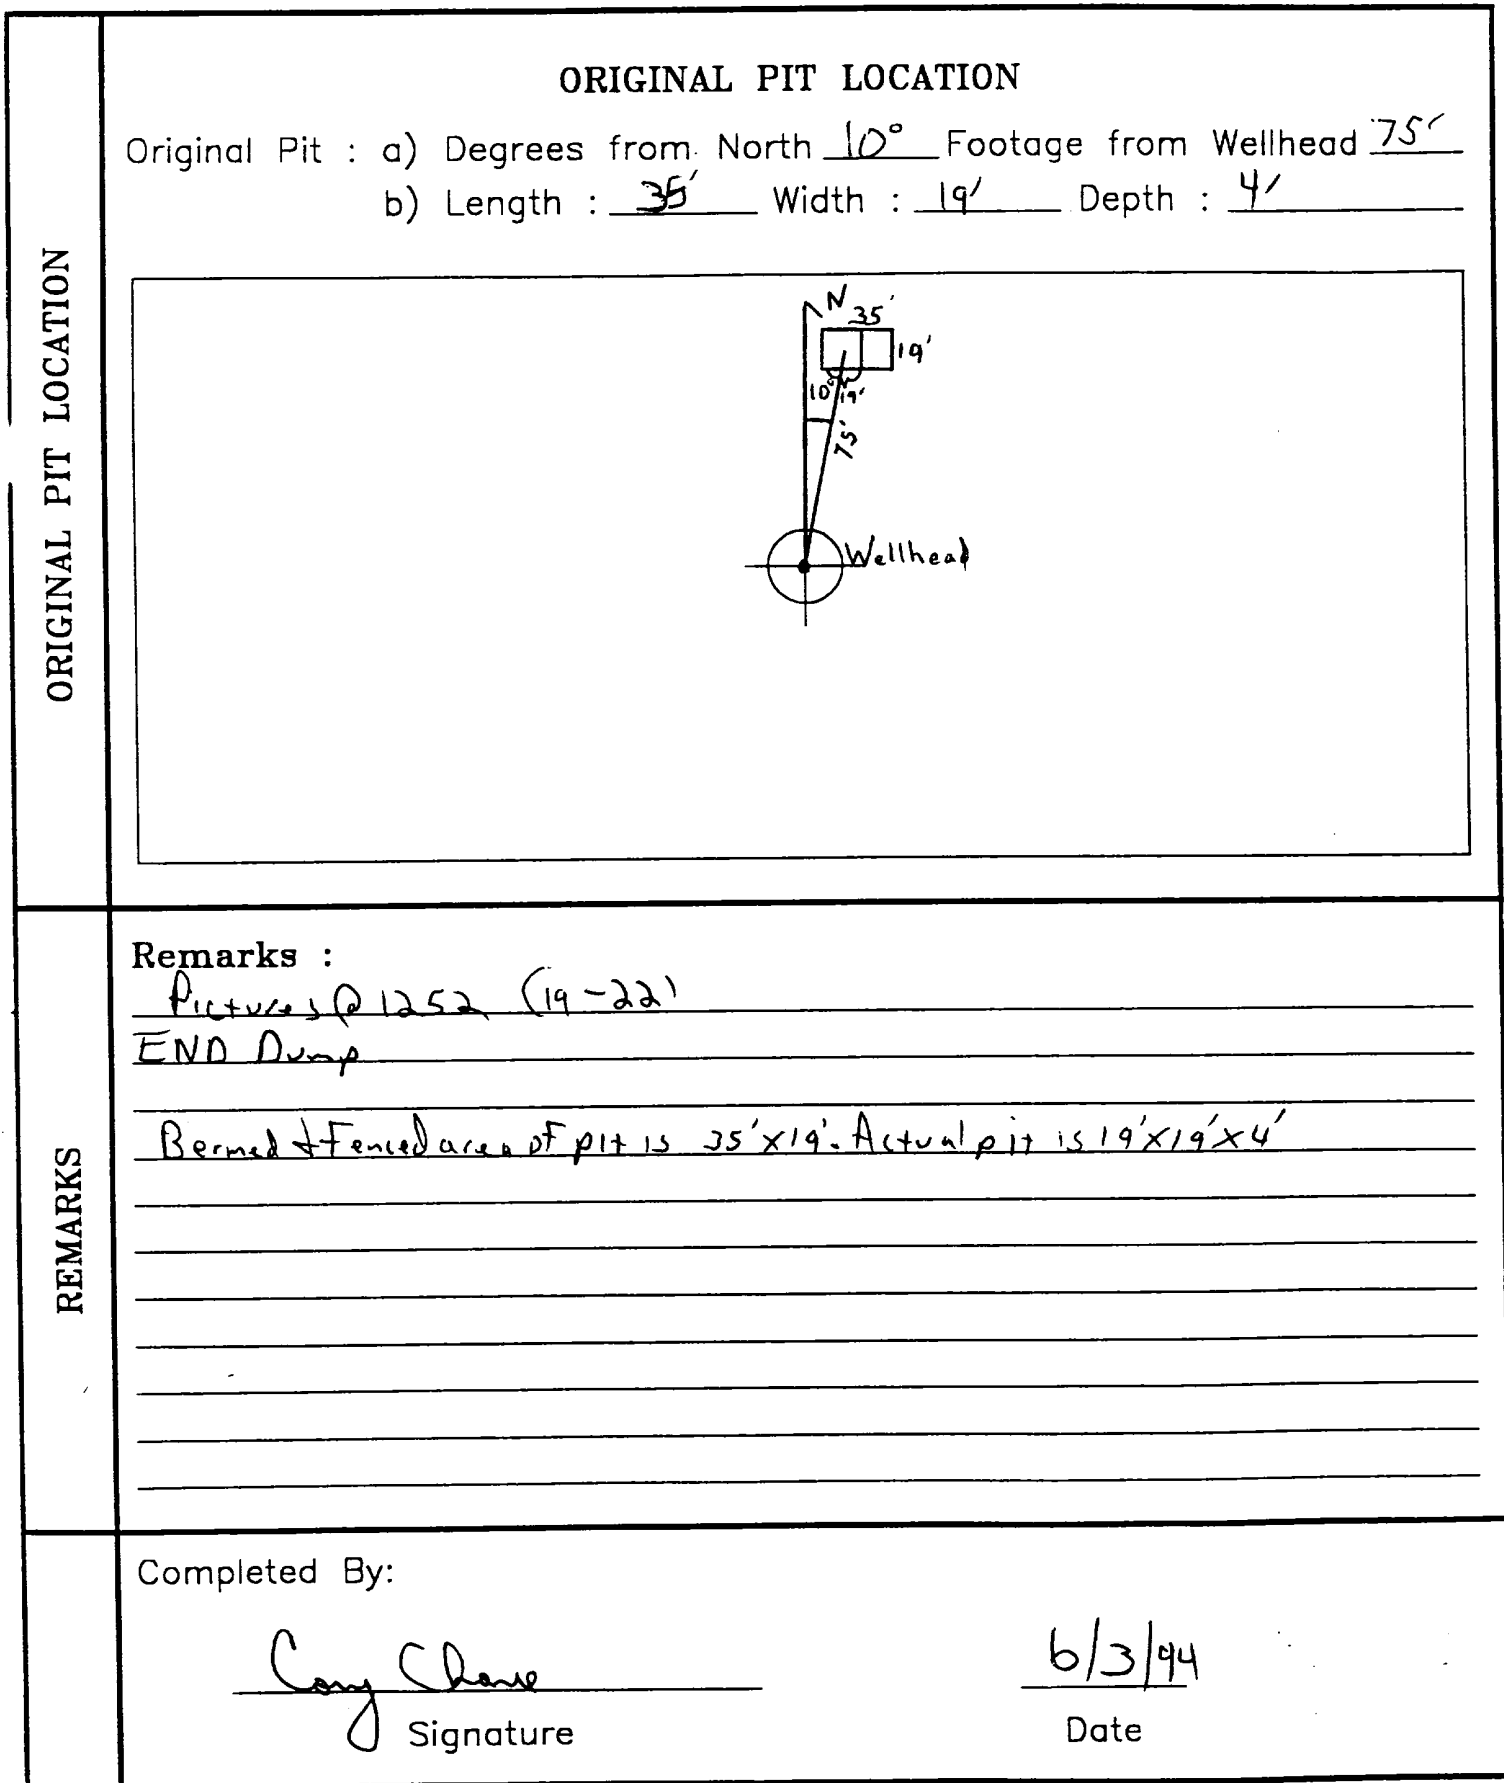 ORIGINAL PIT LOCATION
ORIGINAL PIT LOCATION
Original Pit : a) Degrees from North 10° Footage from Wellhead 75'
b) Length : 35' Width : 19' Depth : 4'
N
35'
19'
10° 19'
75'
Wellhead
REMARKS
Remarks :
Pictures @ 1252 (19-22)
END Dump
Bermed & Fenced area of pit is 35'x19'. Actual pit is 19'x19'x4'
Completed By:
Cory Chance
6/3/94
Signature
Date